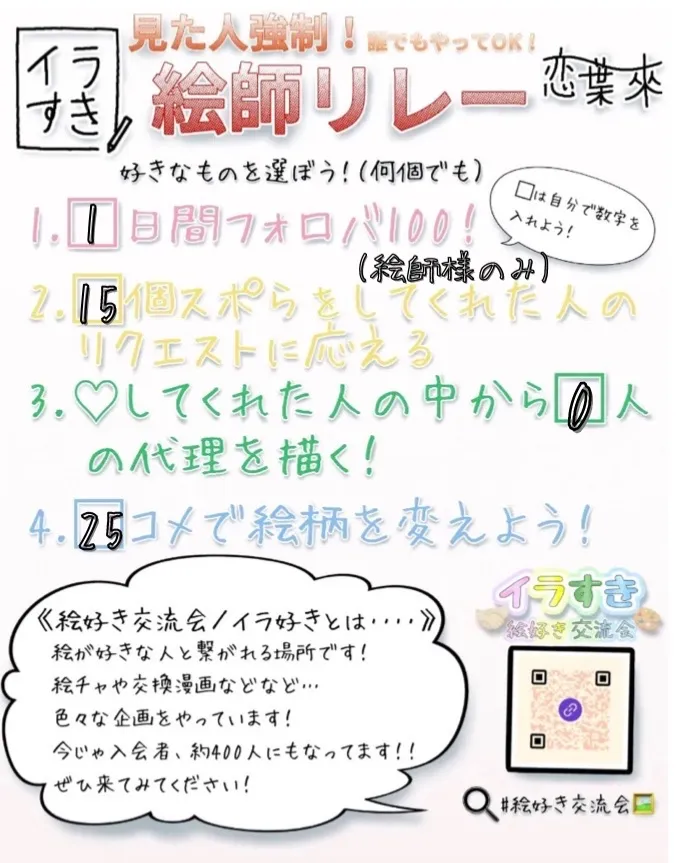 イラ
すき
見た人強制！誰でもやってOK！
絵師リレー
恋葉來
好きなものを選ぼう！(何個でも)
□は自分で数字を
入れよう！
1. 1日間フォロバ100！
(絵師様のみ)
2. 15個スポらをしてくれた人の
リクエストに応える
3. ♡してくれた人の中から0人
の代理を描く！
4. 25コメで絵柄を変えよう！
《絵好き交流会/イラ好きとは‥‥》
絵が好きな人と繋がれる場所です！
絵チャや交換漫画などなど…
色々な企画をやっています！
今じゃ入会者、約400人にもなってます！！
ぜひ来てみてください！
イラすき
絵好き交流会
#絵好き交流会🖼️